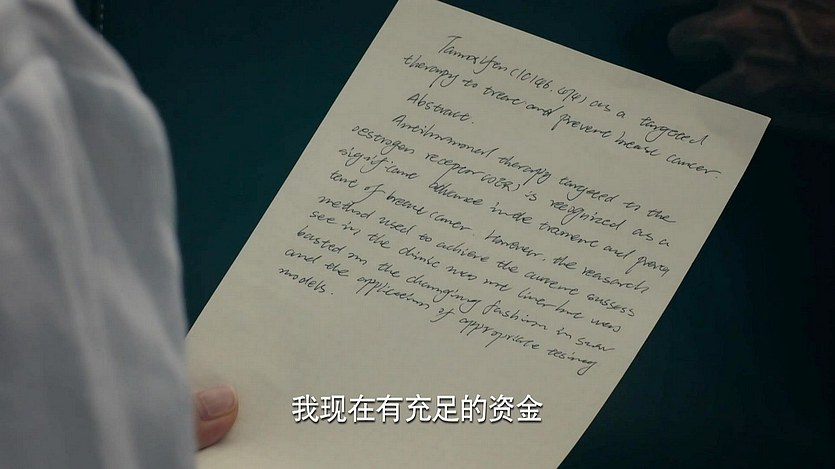 Tamoxifen (10146.474) as a targeted
therapy to treat and prevent breast cancer.
Abstract.
Antihormonal therapy targeted to the
oestrogen receptor (OER) is recognized as a
significant advance in the treatment and preven
tent of breast cancer. However, the research
method used to achieve the current success
see in the clinic was not linear but was
basted on the changing fashion in
and the application of appropriate tesing
models.
我现在有充足的资金